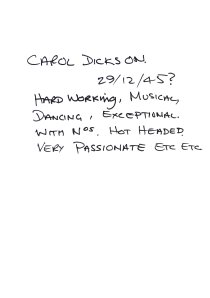 CAROL DICKSON.
29/12/45?
HARD WORKING, MUSICAL,
DANCING, EXCEPTIONAL.
WITH Nos. HOT HEADED.
VERY PASSIONATE ETC ETC